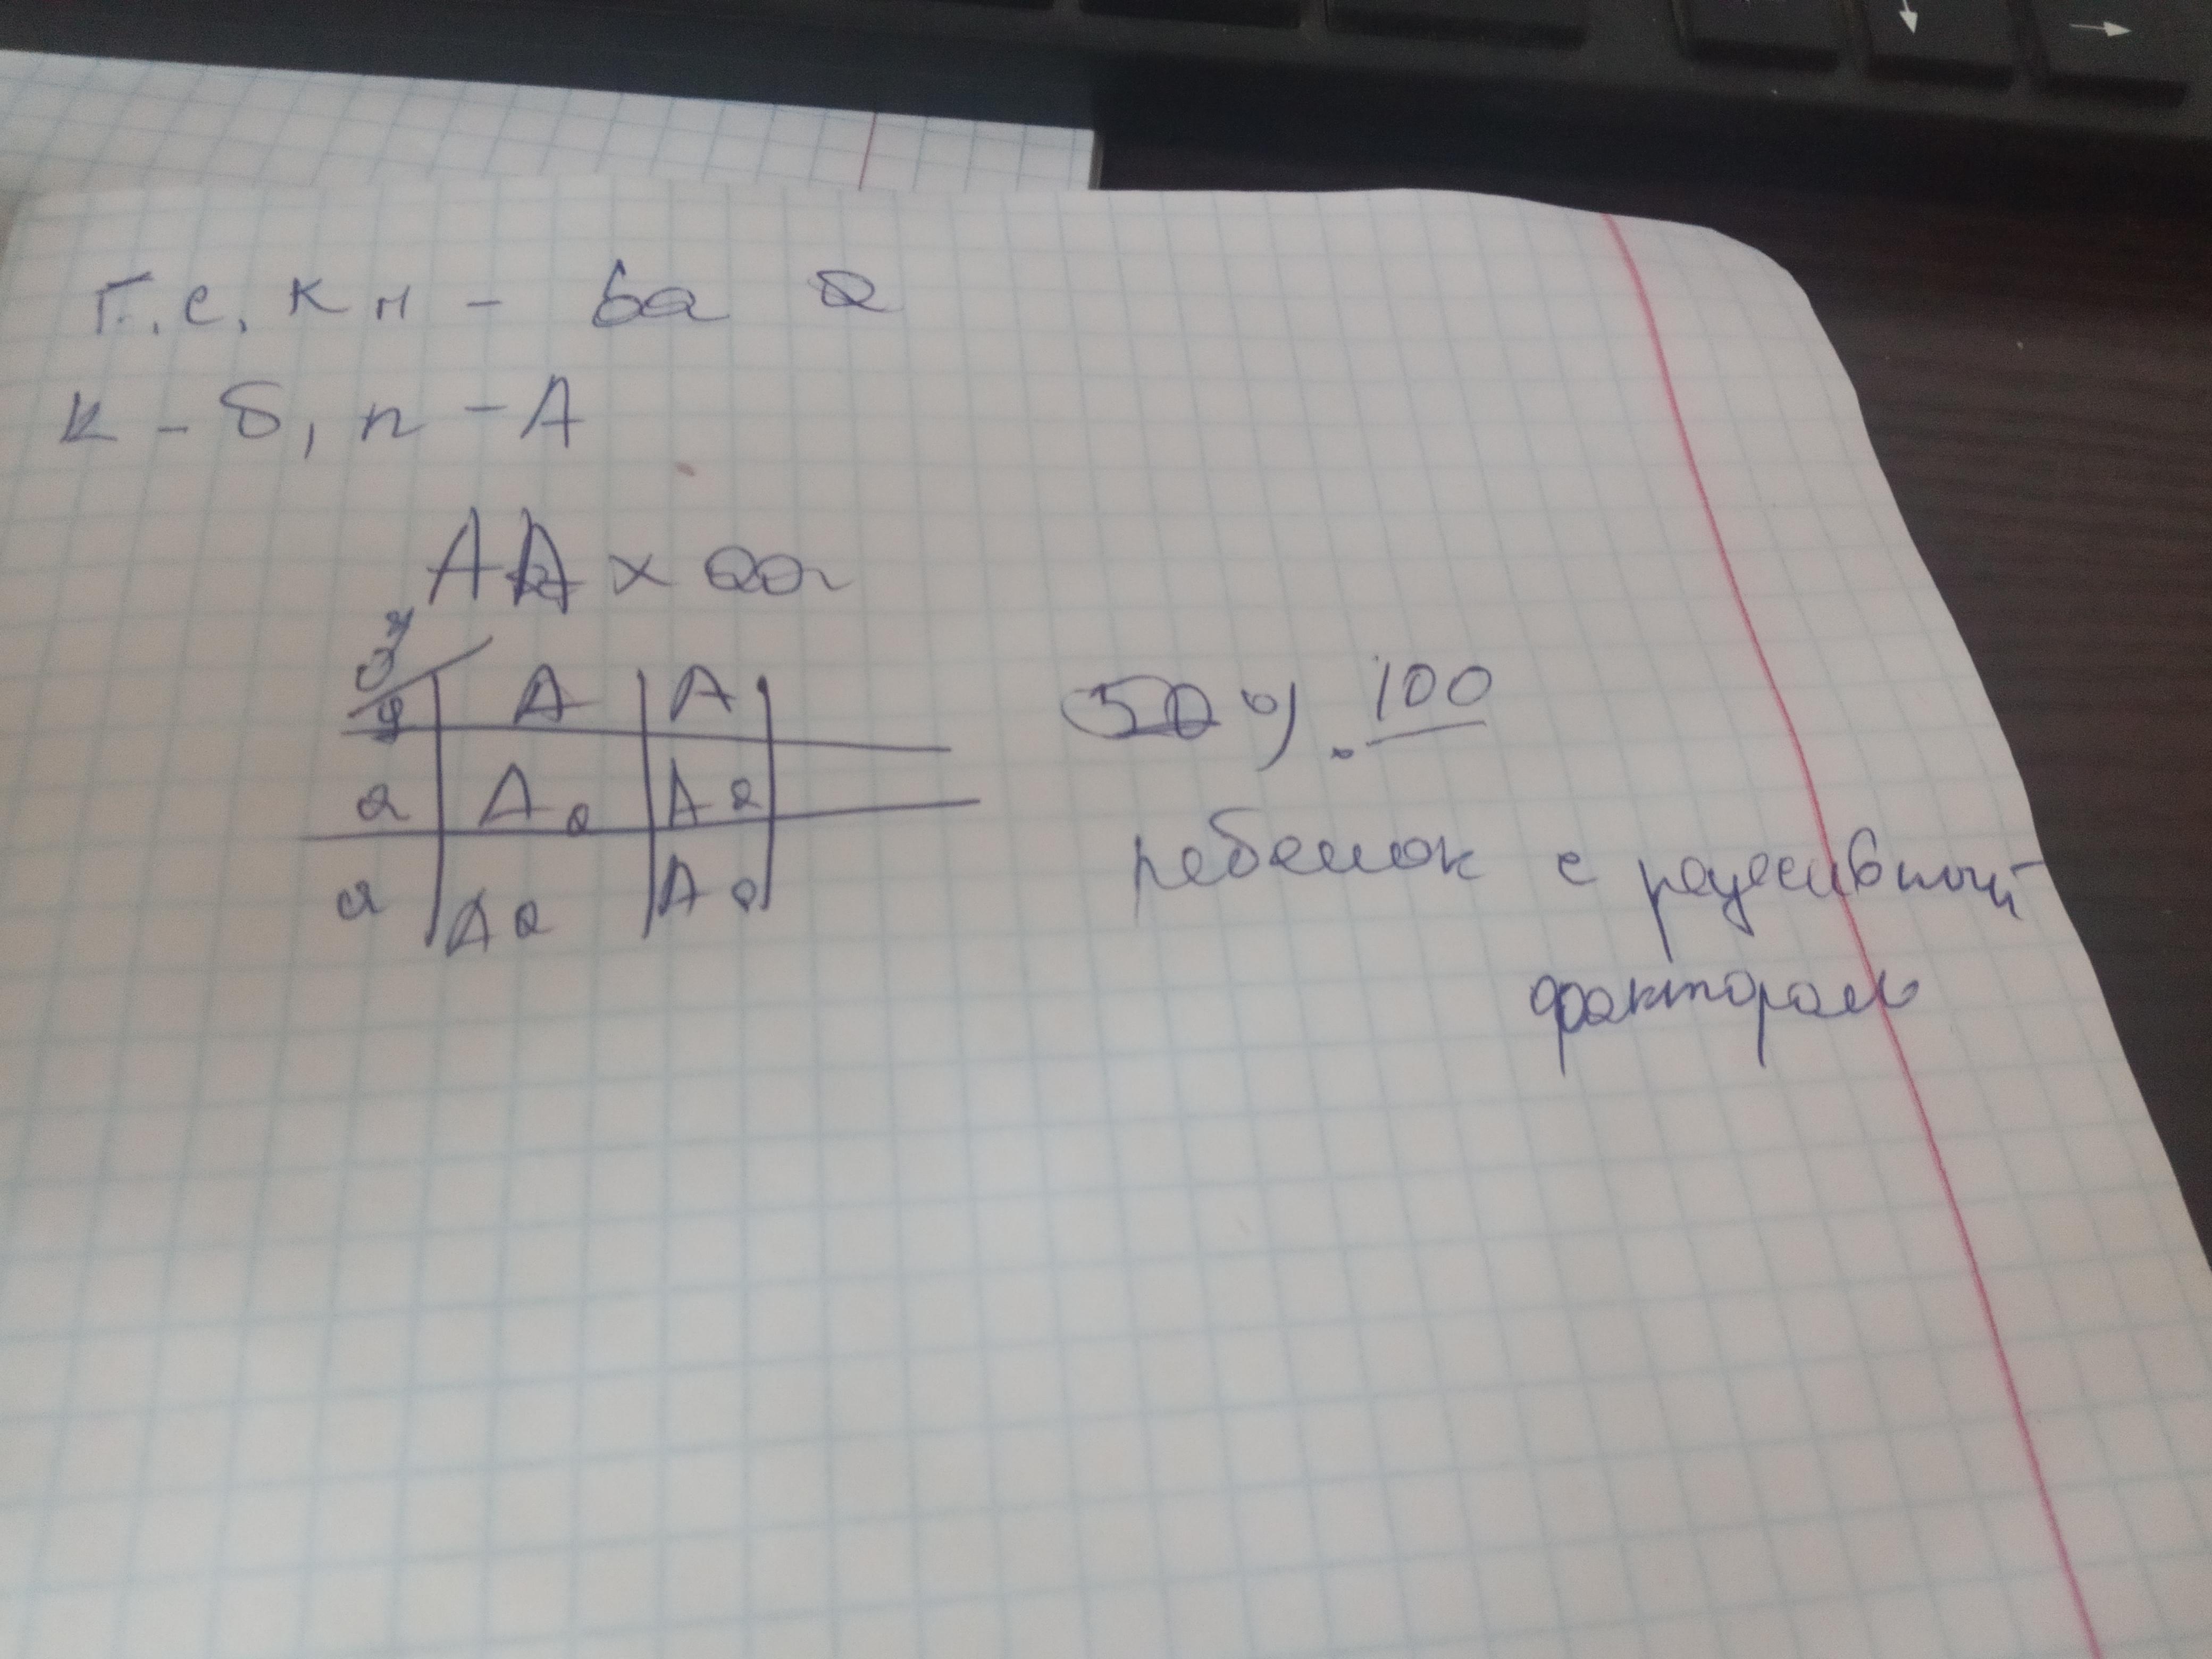 Г.с. кн - ба а
к - б, п - А
АА × аа
♂ ♀ А А
а Аа Аа
а Аа Аа
50 % . 100
ребенок с рецесивной
фактором